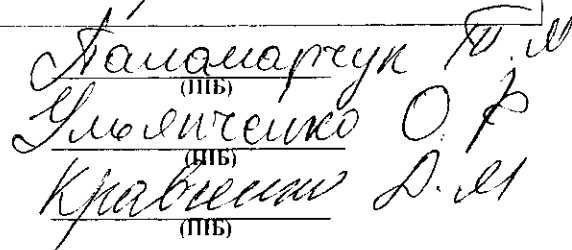 Паламарчук Т. М
(ПІБ)
Ульянченко О. Р
(ПІБ)
Кравченко Д. М
(ПІБ)